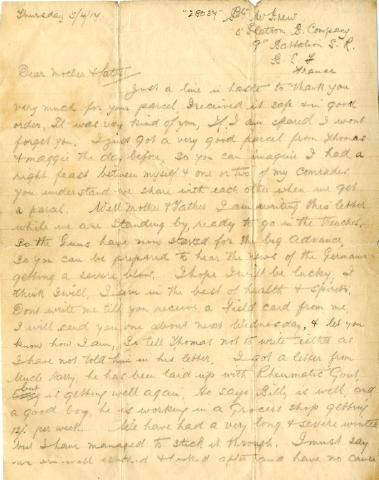 Thursday 5/4/17
"28034" Pte McGrew
5 Platoon B. Company
9th Battalion S. R.
B. E. F
France
Dear Mother & father
Just a line in haste to thank you
very much for your parcel I received it safe & in good
order, It was very kind of you, If I am spared I wont
forget you. I just got a very good parcel from Thomas
& maggie the day before, So you can imagine I had a
right feast between myself & one or two of my Comrades
you understand we share with each other when we get
a parcel. Well Mother & Father I am writing this letter
while we are standing by, ready to go in the trenches.
So the Guns have now started for the big advance,
So you can be prepared to hear the news of the Germans
getting a severe blow. I hope I will be lucky, I
think I will. I am in the best of health & spirits.
Dont write me till you receive a field card from me.
I will send you one about next Wednesday, & let you
know how I am, So tell Thomas not to write either as
I have not told him in his letter. I got a letter from
Uncle Harry, he has been laid up with Rheumatic Gout,
but is getting well again. He says Billy is well, and
a good boy, he is working in a Grocers shop getting
12/- per week. We have had a very long & severe winter
but I have managed to stick it through. I must say
we are well clothed & looked after and have no cause